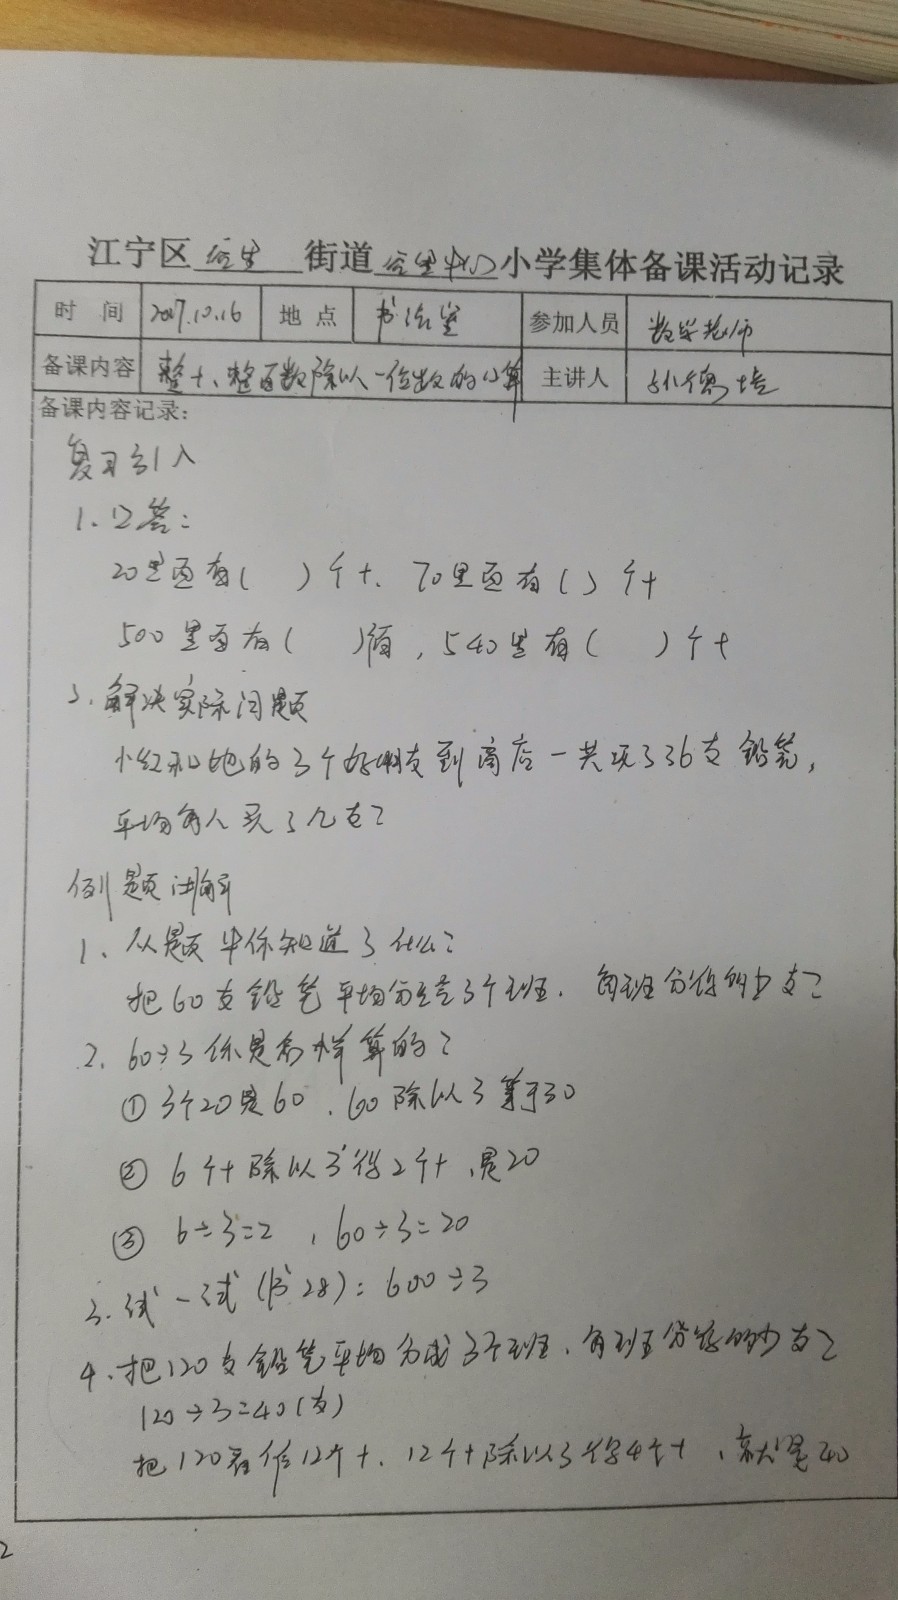 江宁区 谷里 街道 谷里中心 小学集体备课活动记录
时间 2017.10.16 地点 书法室 参加人员 数学老师
备课内容 整十、整百数除以一位数的口算 主讲人
备课内容记录：
复习引入
1、口答：
20里面有( )个十、70里面有( )个十
500里面有( )个百，540里有( )个十
2、解决实际问题
小红和她的3个好朋友到商店一共买了36支铅笔，
平均每人买了几支？
例题讲解
1、从题中你知道了什么？
把60支铅笔平均分给3个班，每班分得多少支？
2、60÷3你是怎样算的？
①3个20是60，60除以3等于20
②6个十除以3得2个十，是20
③6÷3=2，60÷3=20
3、试一试(书28)：600÷3
4、把120支铅笔平均分成3个班，每班分得多少支？
120÷3=40(支)
把120看作12个十，12个十除以3得4个十，就是40
2